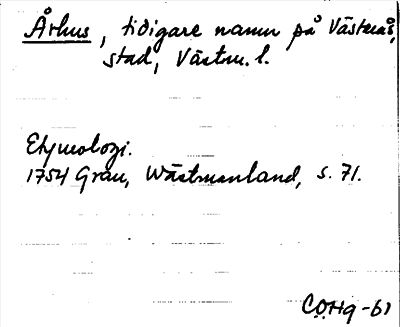 Århus, tidigare namn på Västerås,
stad, Västm. l.
Etymologi.
1754 Grau, Wästmanland, s. 71.
COHg-61